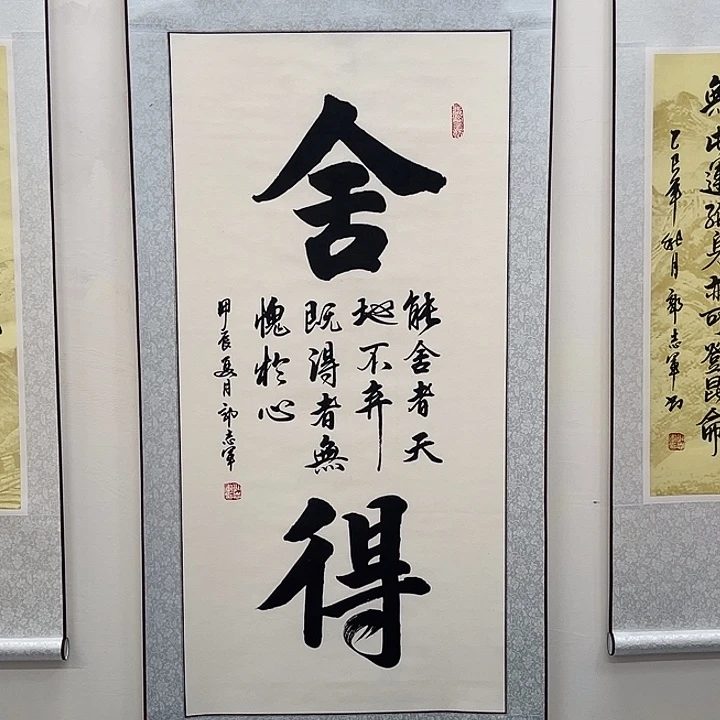 舍
得
能舍者天
地不弃
既得者無
愧於心
甲辰夏月 郭志軍
乙巳年秋月 郭志軍书